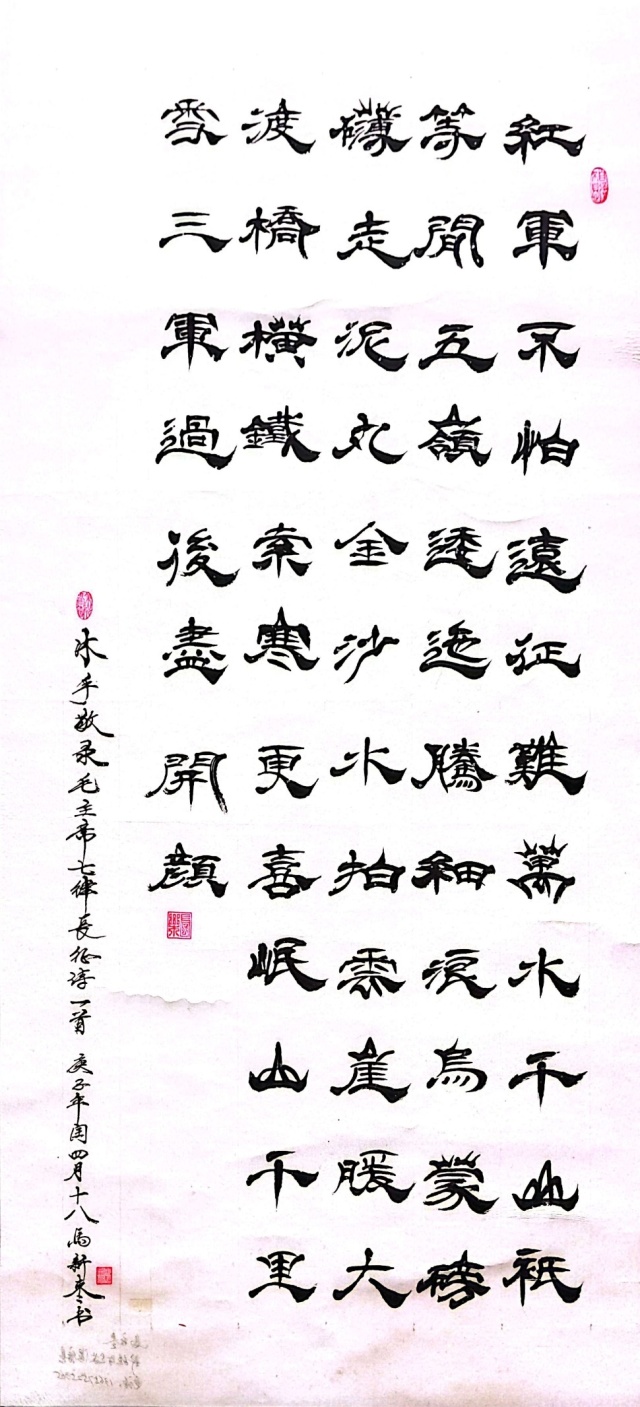 紅軍不怕遠征難萬水千山祇
等閒五嶺逶迤騰細浪烏蒙磅
礴走泥丸金沙水拍雲崖暖大
渡橋橫鐵索寒更喜岷山千里
雪三軍過後盡開顔
沐手敬录毛主席七律長征诗一首 庚子年闰四月十八馬新书